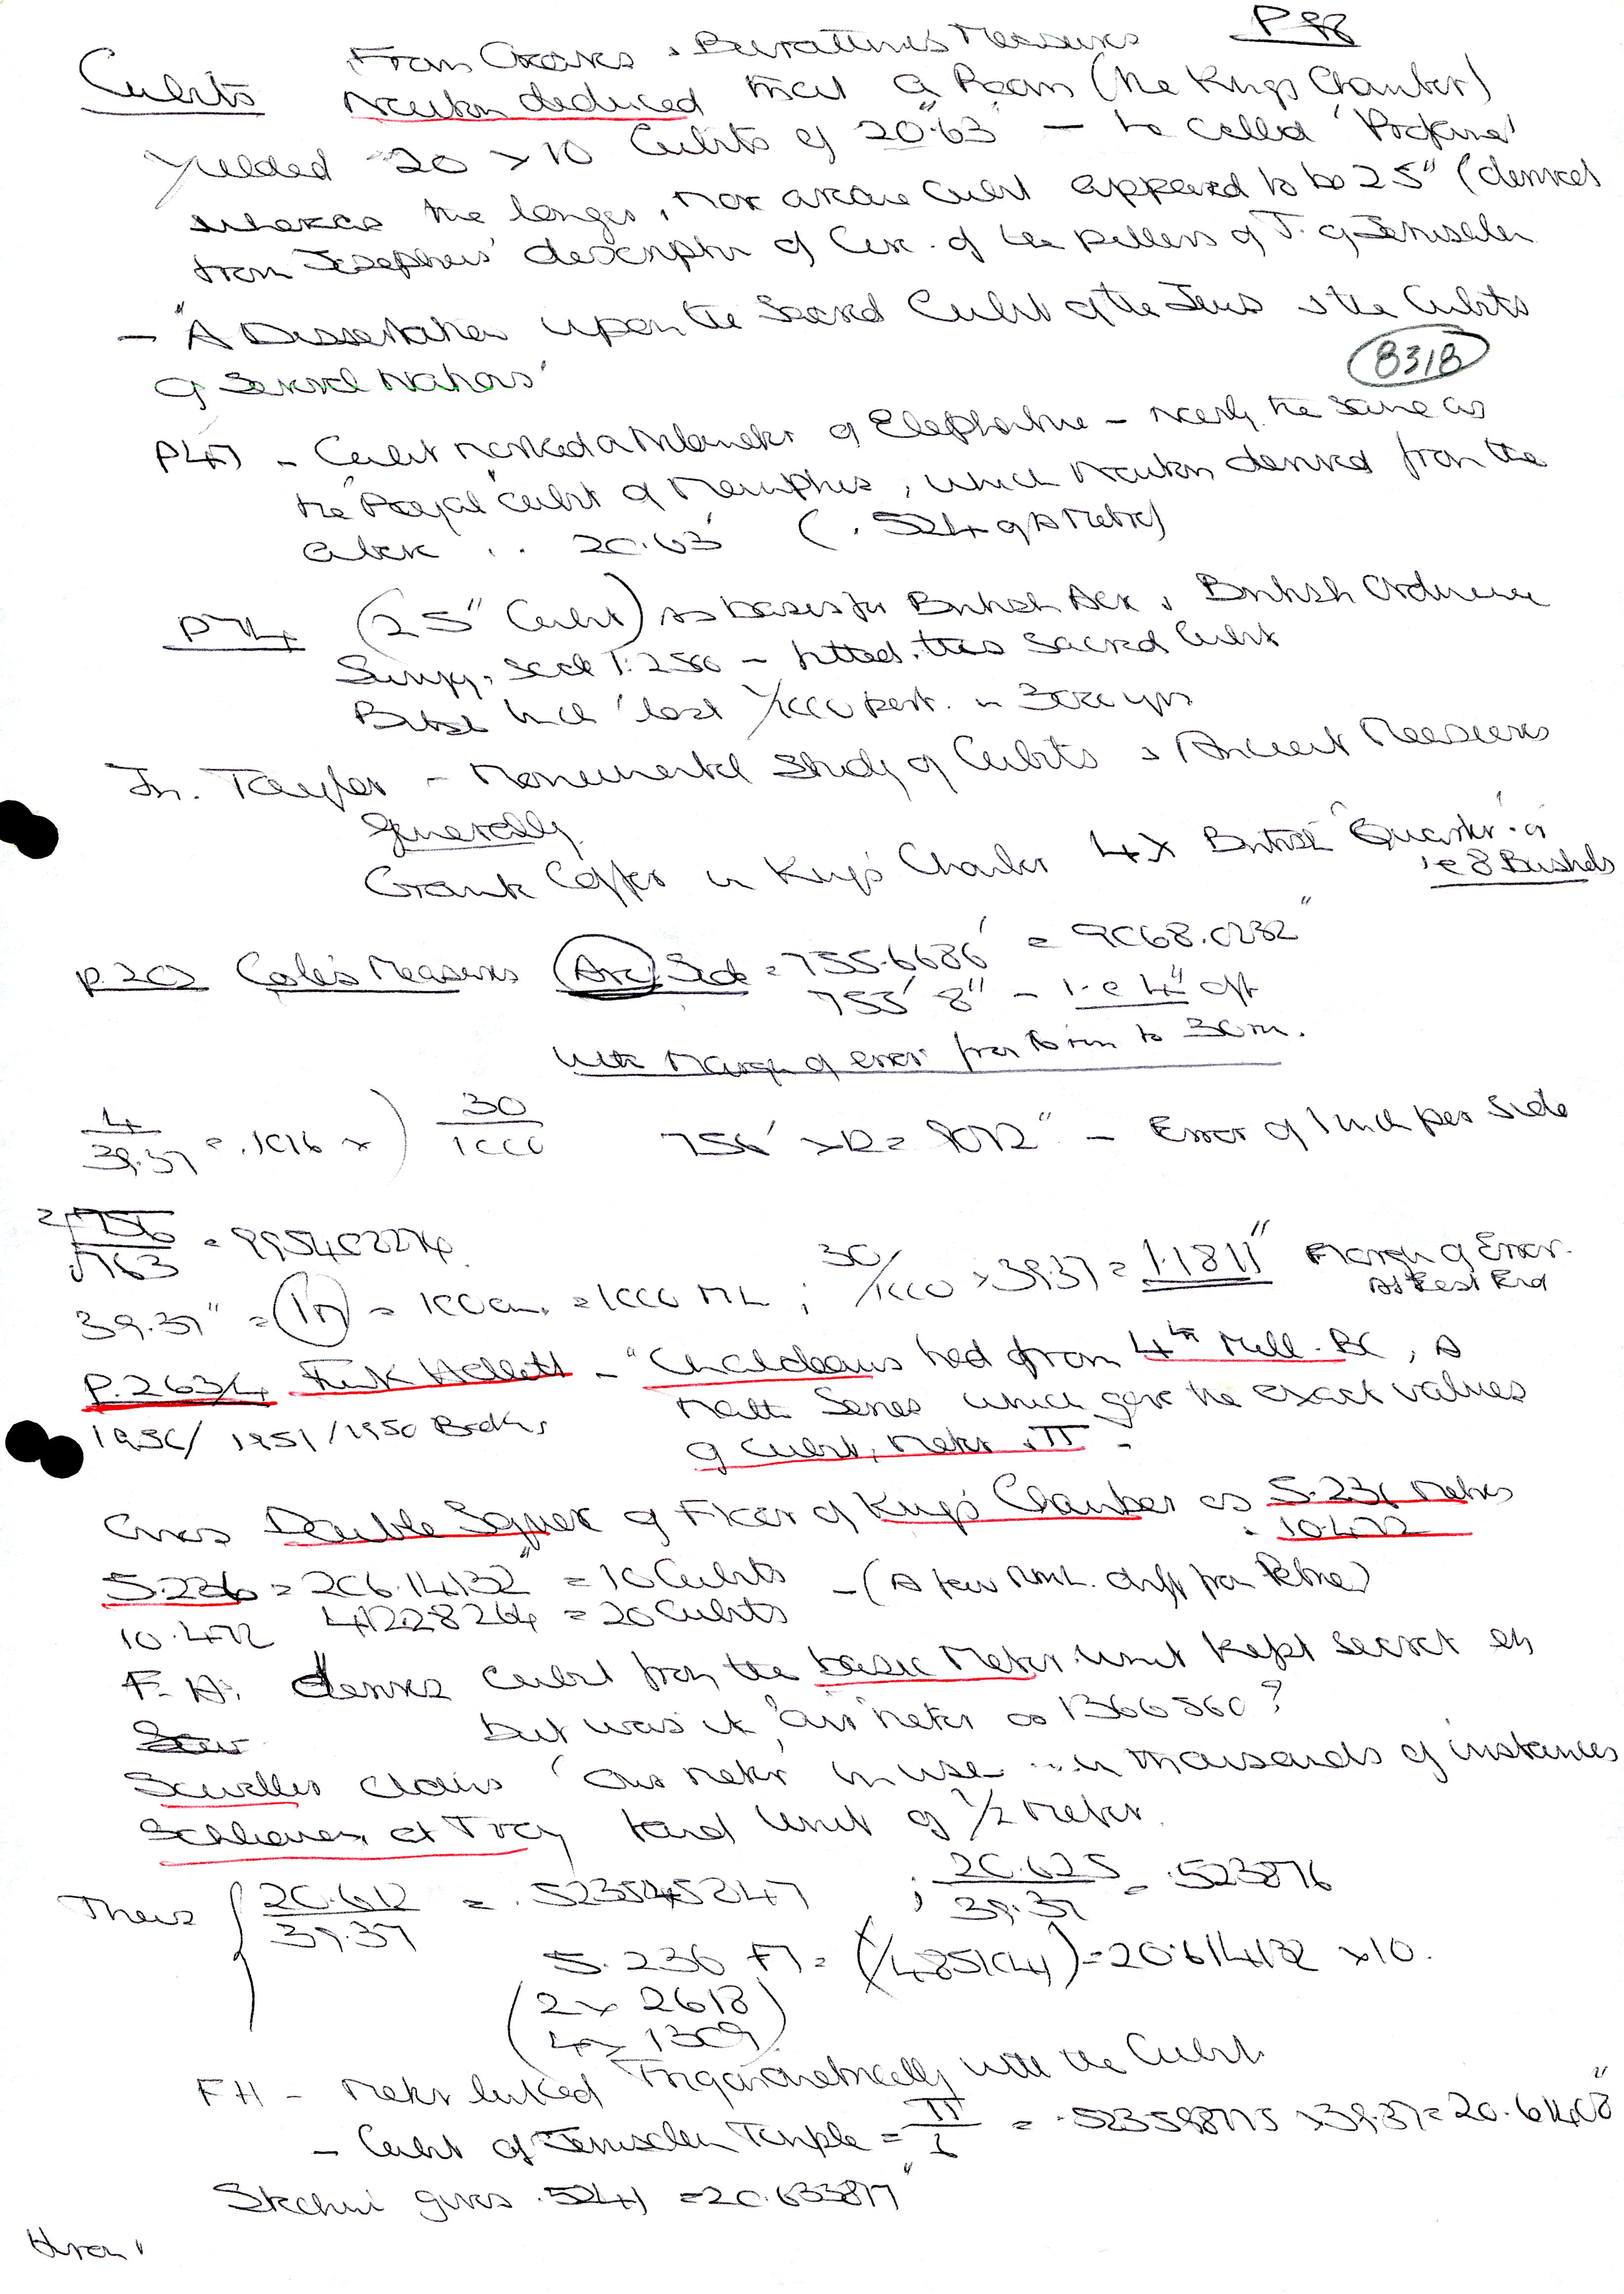 P 88
Cubits From Greaves & Burattini's Measures
Newton deduced that a Room (the Kings Chamber)
Yielded 20 x 10 Cubits of 20.63" - he called 'Profane'
whereas the longer, more arcane cubit appeared to be 25" (derived
from Josephus' description of Circ. of the pillers of T. of Jerusalem
- "A Dissertation upon the Sacred Cubit of the Jews & the Cubits
of Several Nations'
8318
P47 - Cubit marked at Nilometer of Elephantine - nearly the same as
the 'Royal' Cubit of Memphis, which Newton derived from the
above .. 20.63" (.524 of a Metre)
P74 (25" Cubit) as basis for British Acre, British Ordnance
Survey, Scale 1:2500 - fitted this Sacred Cubit
British Inch 'lost 1/1000 part' in 3000 yrs
Jn. Taylor - Monumental Study of Cubits & Ancient Measures
Generally
Granite Coffer in King's Chamber 4x British 'Quarter'
i.e 8 Bushels
P.202 Cole's Measures Side = 755.6686' = 9068.0232"
755' 8" - i.e 4" off
with Margin of error from 6 mm to 30m.
4/39.37 = .1016 x ) 30/1000 756' x 12 = 9072" - Error of 1 inch per side
756/763 = 995402274
39.37" = 1m = 100cm. = 1000 ML ; 30/1000 x 39.37 = 1.1811" Margin of Error
At East End
P.263/4 - "Chaldeans had from 4th Mill. BC, A
1950 Books Math Series which gave the exact values
of Cubit, Meter, π -
Gives Double Square of Floor of King's Chamber as 5.236 metres
10.472
5.236 = 206.14132" = 10 Cubits - (A few Mml. diff from Petrie)
10.472 412.28264 = 20 Cubits
F.H: derives Cubit from the basic Meter unit kept secret
but was it 'our' meter as 1366560?
claims 'our meter' in use in thousands of instances
Schliemann at Troy found Unit of 1/2 Meter.
Thus 20.612/39.37 = .5235458247 ; 20.625/39.37 = .523876
5.236 = = 20.614132 x10.
(2 x 2618)
(4 x 1309)
FH - Meter linked Trigonometrically with the Cubit.
- Cubit of Jerusalem Temple = π/6 = .523598775 x 39.37 = 20.61408"
Stecchini gives .5241 = 20.633817"